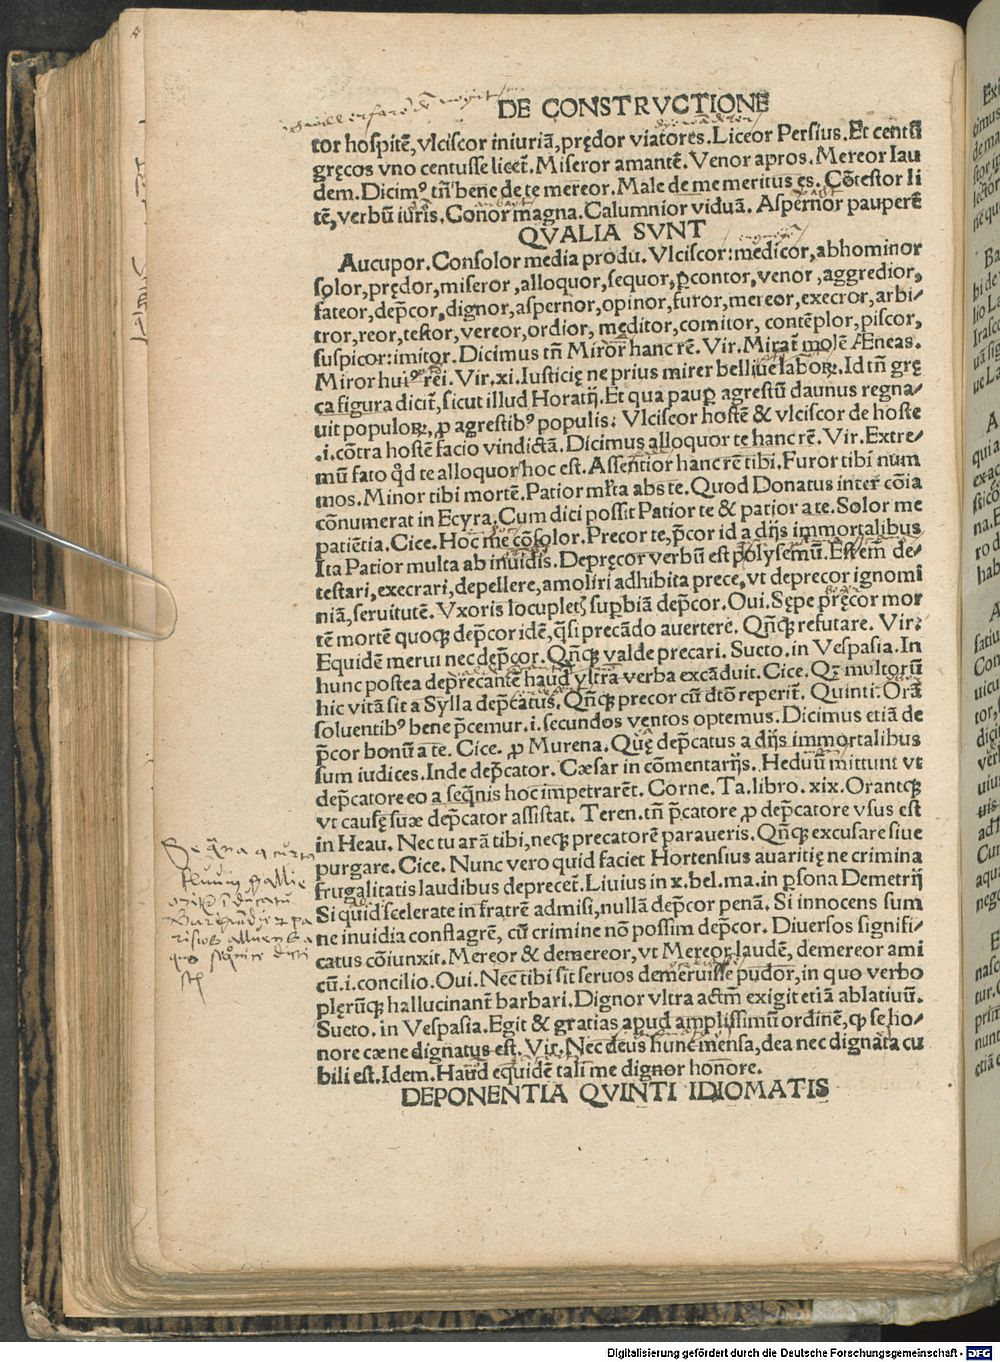 DE CONSTRVCTIONE
tor hospitē, vlciscor iniuriā, prędor viatores. Liceor Persius. Et centū
gręcos vno centusse licet̄. Miseror amantē. Venor apros. Mereor lau
dem. Dicimꝰ tn̄ bene de te mereor. Male de me meritus es. Cōtestor li
tē, verbū iuris. Conor magna. Calumnior viduā. Aspernor pauperē
QVALIA SVNT
Aucupor. Consolor media produ. Vlciscor: medicor, abhominor
solor, prędor, miseror, alloquor, sequor, ꝑcontor, venor, aggredior,
fateor, dep̄cor, dignor, aspernor, opinor, furor, mereor, execror, arbi/
tror, reor, testor, vereor, ordior, meditor, comitor, contēplor, piscor,
suspicor: imitor. Dicimus tn̄ Miror hanc rē. Vir. Mirat̄ molē Æneas.
Miror huiꝰ rei. Vir. xi. Iusticię ne prius mirer belli ue laboꝝ. Id tn̄ grę
ca figura dicit̄, sicut illud Horatij. Et qua paup̱ agrestū daunus regna/
uit populoꝝ, ꝓ agrestibꝰ populis: Vlciscor hostē & vlciscor de hoste
.i. cōtra hostē facio vindictā. Dicimus alloquor te hanc rē. Vir. Extre/
mū fato qđ te alloquor hoc est. Assentior hanc rē tibi. Furor tibi num
mos. Minor tibi mortē. Patior ml̄ta abs te. Quod Donatus inter cōia
cōnumerat in Ecyra. Cum dici possit Patior te & patior a te. Solor me
patiētia. Cice. Hoc me cōsolor. Precor te, p̄cor id a dijs immortalibus
Ita Patior multa ab inuidis. Depręcor verbū est polysemū. Est em̄ de/
testari, execrari, depellere, amoliri adhibita prece, vt deprecor ignomi
niā, seruitutē. Vxoris locupletꝭ supbiā dep̄cor. Oui. Sępe pręcor mor
tē mortē quoqꝫ dep̄cor idē, q̄si precādo auertere. Qn̄qꝫ refutare. Vir:
Equidē merui nec dep̄cor. Qn̄qꝫ valde precari. Sueto. in Vespasia. In
hunc postea deprecantē haud vltra verba excāduit. Cice. Qꝫ multorū
hic vitā sit a Sylla dep̄catus. Qn̄qꝫ precor cū dt̄o reperit̄. Quinti. Orā
soluentibꝰ bene p̄cemur .i. secundos ventos optemus. Dicimus etiā de
p̄cor bonū a te. Cice. ꝓ Murena. Quę dep̄catus a dijs immortalibus
sum iudices. Inde dep̄cator. Cæsar in cōmentarijs. Heduū mittunt vt
dep̄catore eo a seq̄nis hoc impetrarēt. Corne. Ta. libro. xix. Orantqꝫ
vt causę suæ dep̄cator assistat. Teren. tn̄ p̄catore ꝓ dep̄catore vsus est
in Heau. Nec tu arā tibi, neqꝫ precatorē paraueris. Qn̄qꝫ excusare siue
purgare. Cice. Nunc vero quid faciet Hortensius auaritię ne crimina
frugalitatis laudibus deprecet̄. Liuius in x. bel. ma. in ꝑsona Demetrij
Si quid scelerate in fratrē admisi, nullā dep̄cor penā. Si innocens sum
ne inuidia conflagrē, cū crimine nō possim dep̄cor. Diuersos signifi/
catus cōiunxit. Mereor & demereor, vt Mereor laudē, demereor ami
cū .i. concilio. Oui. Nec tibi sit seruos demeruisse pudor, in quo verbo
plęrūqꝫ hallucinant̄ barbari. Dignor vltra actm̄ exigit etiā ablatiuū.
Sueto. in Vespasia. Egit & gratias apud amplissimū ordinē, ꝙ se ho/
nore cæne dignatus est. Vir. Nec deus hunc mensa, dea nec dignata cu
bili est. Idem. Haud equidē tali me dignor honore.
DEPONENTIA QVINTI IDIOMATIS
Digitalisierung gefördert durch die Deutsche Forschungsgemeinschaft - DFG